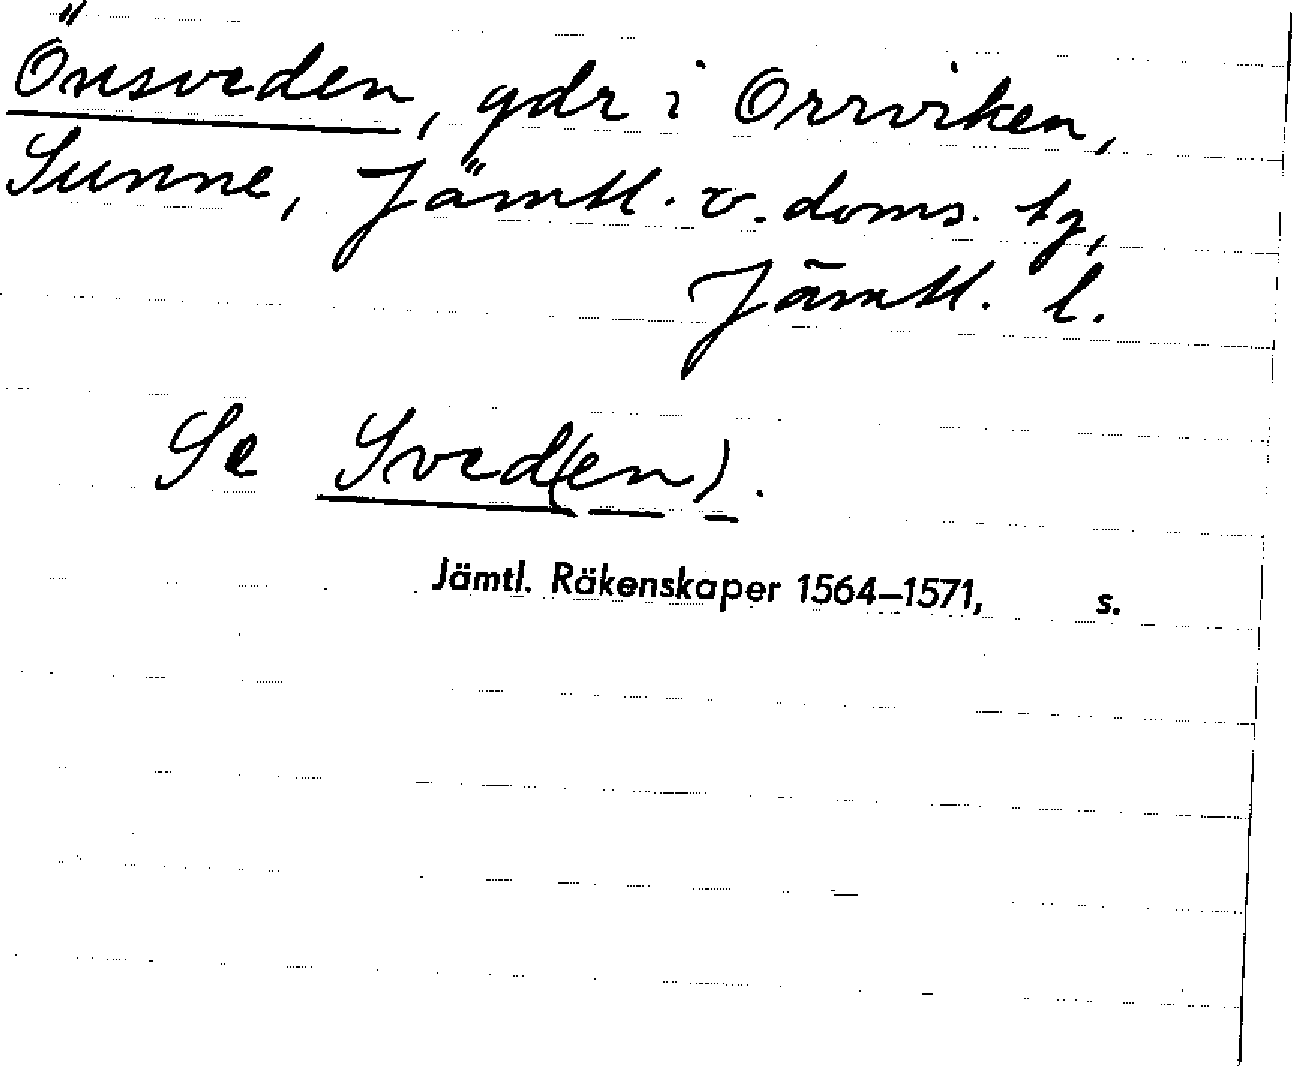 Önsveden, gdr i Orrviken,
Sunne, Jämtl. v. doms. tg,
Jämtl. l.
Se Sved(en).
Jämtl. Räkenskaper 1564–1571, s.